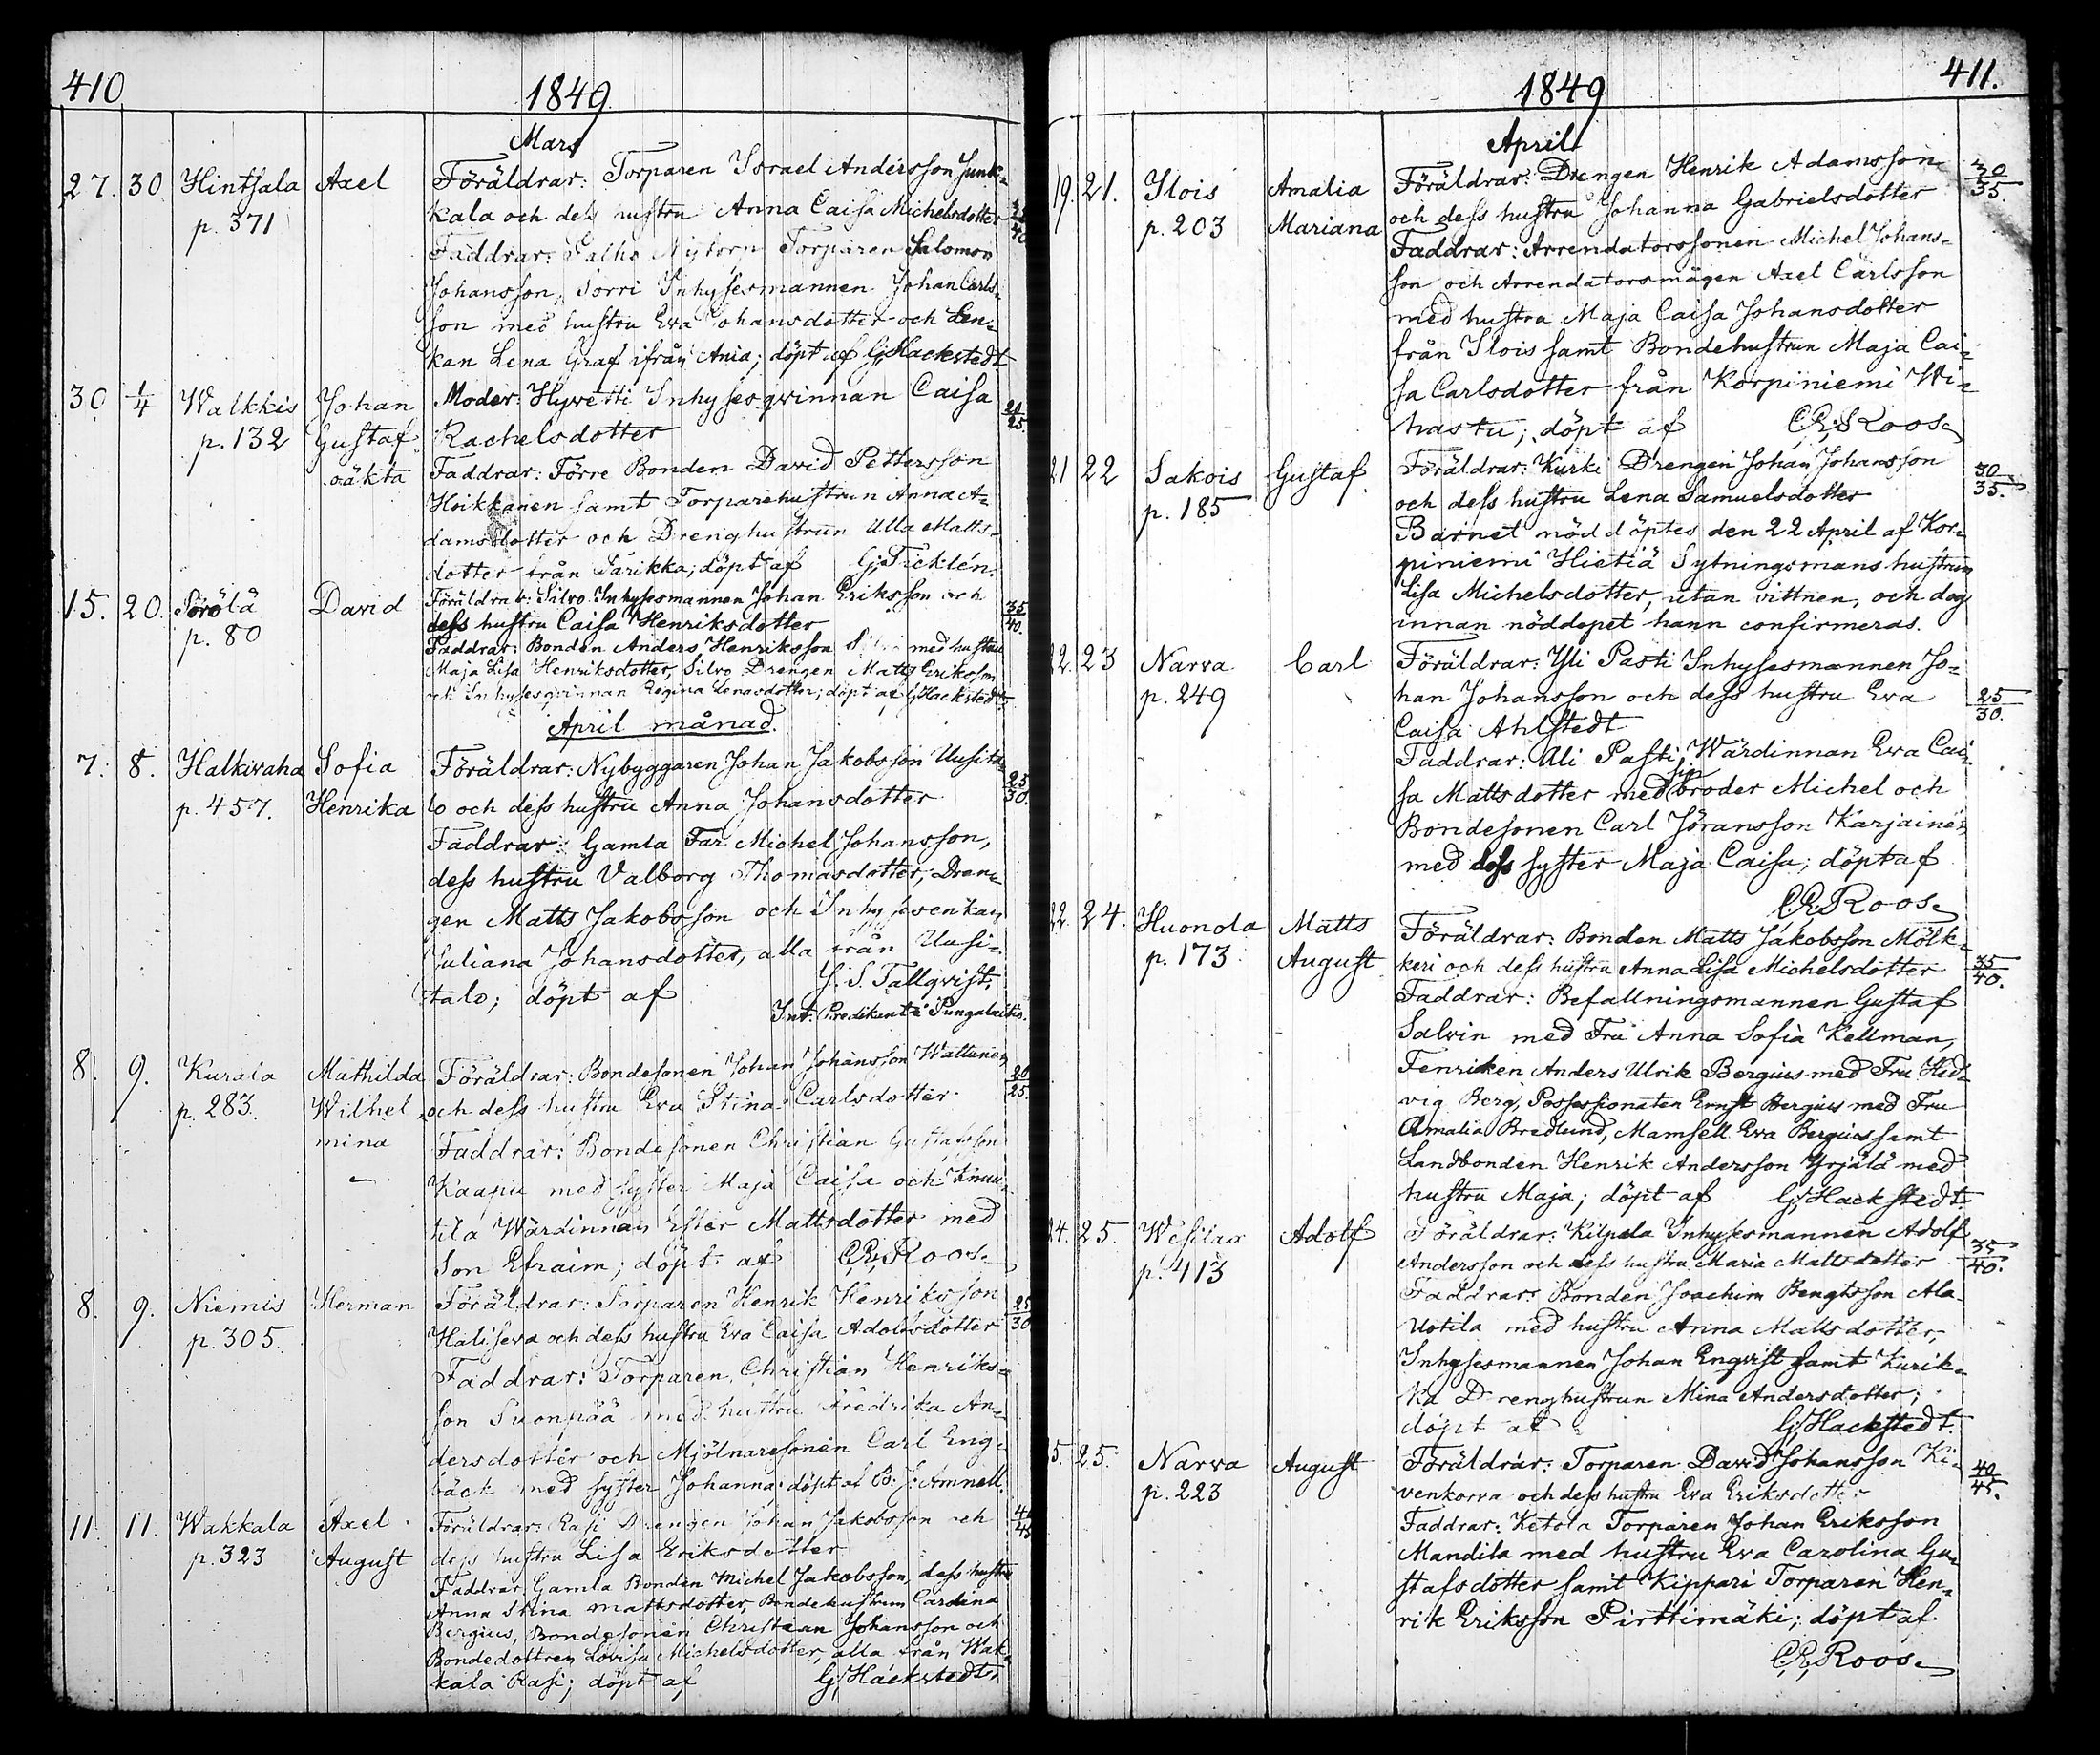 410
1849
Mars
27. 30 Hintsala Axel Föräldrar: Torparen Israel Andersson Junk-
p. 371 kala och dess hustru Anna Caisa Michelsdotter
Faddrar: Nytorp Torparen Salomon
Johansson, Sorri Inhysesmannen Johan Carls-
son med hustru Eva Johansdotter och Een-
kan Lena Graf ifrån Ania; döpt af G. Hackstedt
30 1/4 Walkkis Johan Moder: Hyvetti Inhysesqvinnan Caisa 20/25.
p. 132 Gustaf Rachelsdotter
oäkta Faddrar: Förre Bonden David Pettersson
Heikkanen samt Torparehustrun Anna A-
damsdotter och Dreng hustrun Ulla Matts-
dotter från Sarikka; döpt af G. Ticklén.
15. 20. Pörölä David Föräldrar: Silvo Inhysesmannen Johan Eriksson och 35/40.
p. 80 dess hustru Caisa Henriksdotter
Faddrar: Bonden Anders Henriksson med hustru
Maja Lisa Henriksdotter, Silvo Drengen Matts Eriksson
och Inhysesqvinnan Regina Lenasdotter; döpt af G. Hackstedt
April månad.
7. 8. Halkivaha Sofia Föräldrar: Nybyggaren Johan Jakobsson Uusita- 25/30.
p. 457. Henrika lo och dess hustru Anna Johansdotter
Faddrar: Gamla Far Michel Johansson,
dess hustru Valborg Thomasdotter, Dren-
gen Matts Jakobsson och Inhysesenkan
Juliana Johansdotter, alla från Uusi-
talo; döpt af J. S. Tallqvist.
Int. Predikant i Pungalaitio.
8. 9. Kurala Mathilda Föräldrar: Bondesonen Johan Johansson Wattunen 20/25.
p. 283. Wilhel och dess hustru Eva Stina Carlsdotter
mina Faddrar: Bondesonen Christian Gustafsson
Kaapu med syster Maja Caisa och Knuu-
tila Wärdinnan Ester Mattsdotter med
Son Efraim; döpt af C. R. Roos.
8. 9. Niemis Herman Föräldrar: Torparen Henrik Henriksson 25/30
p. 305. Haliseva och dess hustru Eva Caisa Adolfsdotter
Faddrar: Torparen Christian Henriks-
son Suonpää med hustru Fredrika An-
dersdotter och Mjölnaresonen Carl Eng-
bäck med syster Johanna; döpt af B. J. Amnell.
11. 11. Wakkala Axel Föräldrar: Rasi Drengen Johan Jakobsson och
p. 323 August dess hustru Lisa Eriksdotter
Faddrar: Gamla Bonden Michel Jakobsson, dess hustru
Anna Stina Mattsdotter, Bondehustrun Carolina
Bergius, Bondesonen Christian Johansson och
Bondedottren Lovisa Michelsdotter, alla från Wak-
kala Rasi; döpt af G. Hackstedt.
411.
1849
April
19. 21. Ylois Amalia Föräldrar: Drengen Henrik Adamsson 30/35.
p. 203 Mariana och dess hustru Johanna Gabrielsdotter
Faddrar: Arrendatorssonen Michel Johans-
son och Arrendatorsmågen Axel Carlsson
med hustru Maja Caisa Johansdotter
från Ylois samt Bondehustrun Maja Cai-
sa Carlsdotter från Korpiniemi Wi-
hastu; döpt af C. R. Roos.
21 22 Sakois Gustaf. Föräldrar: Kurki Drengen Johan Johansson 30/35.
p. 185 och dess hustru Lena Samuelsdotter
Barnet nöddöptes den 22 April af Kor-
piniemi Hietiä Sytningsmans hustrun
Lisa Michelsdotter, utan vittnen, och dog
innan nöddopet hann confirmeras.
22. 23 Narva Carl Föräldrar: Yli Pasti Inhysesmannen Jo-
p. 249 han Johansson och dess hustru Eva 25/30.
Caisa Ahlstedt
Faddrar: Uli Pasti Wärdinnan Eva Cai-
sa Mattsdotter med sin broder Michel och
Bondesonen Carl Jöransson Karjainen
med dess syster Maja Caisa; döpt af
C. R. Roos.
22. 24. Huonola Matts Föräldrar: Bonden Matts Jakobsson Mölk-
p. 173 August keri och dess hustru Anna Lisa Michelsdotter 35/40.
Faddrar: Befallningsmannen Gustaf
Salvin med Fru Anna Sofia Kellman,
Fenriken Anders Ulrik Bergius med Fru Hed-
vig Berg, Possessionaten Ernst Bergius med Fru
Amalia Bredlund, Mamsell Eva Bergius samt
Landbonden Henrik Andersson Yrjälä med
hustru Maja; döpt af G. Hackstedt.
24. 25. Wesilax Adolf Föräldrar: Kilpala Inhysesmannen Adolf 35/40.
p. 413 Andersson och dess hustru Maria Mattsdotter
Faddrar: Bonden Joachim Bengtsson Ala-
Uotila med hustru Anna Mattsdotter,
Inhysesmannen Johan Engvist samt Kurik-
ka Drenghustrun Mina Andersdotter;
döpt af G. Hackstedt.
25. 25. Narva August Föräldrar: Torparen David Johansson Ki- 40/45.
p. 223 venkorva och dess hustru Eva Eriksdotter
Faddrar: Ketola Torparen Johan Eriksson
Mandila med hustru Eva Carolina Gu-
stafsdotter samt Kippari Torparen Hen-
rik Eriksson Pirttimäki; döpt af.
C. R. Roos.